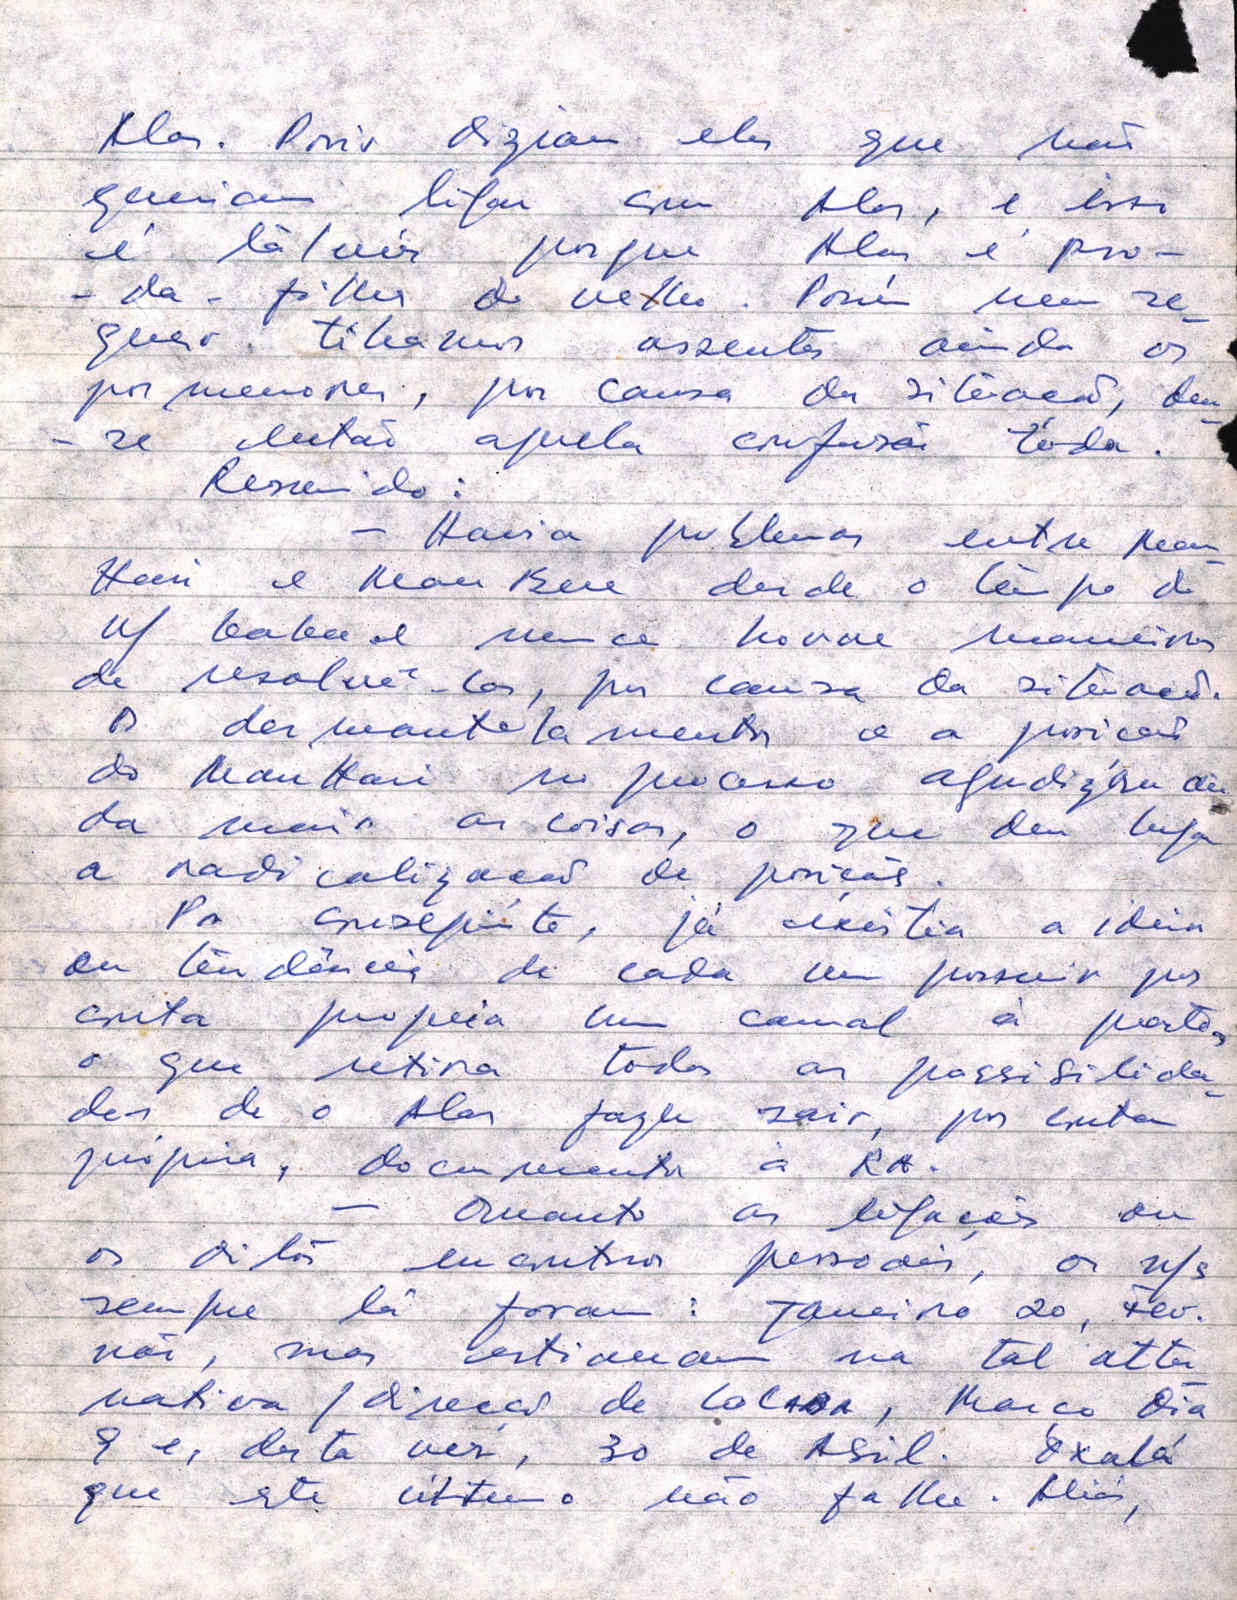 Alas. Pois diziam eles que não
queriam ligar com Alas, e isso
é tálvés porque Alas é pro-
-da- filha do velho. Porém nem se-
quer tinhamos assente ainda os
pormenores, por causa da situação, deu-
-se então aquela confusão tôda.
Resumido:
- Havia problemas entre Mau
Hari e Mau Bere desde o têmpo do
n/ e nunca houve maneiras
de resolvê-los, por causa da situação.
O desmantelamento e a posição
do Mau Hari no processo agudizáram ain
da mais as coisas, o que deu lugar
a radicalização de posições.
Por conseguinte, já existia a ideia
ou têndência de cada um possuir por
conta propria um canal à parte,
o que retira todas as possibilida-
des de o Alas fazer sair, por conta
própria, documentos à RA.
- Quanto as ligações ou
os ditos encontros pessoais, os n/s
sempre lá foram: Janeiro 20, Fev.
não, mas estiveram na tal alter
nativa / direcção de, Março Dia
9 e, desta vês, 30 de Abril. Oxalá
que este último não falhe. Aliás,